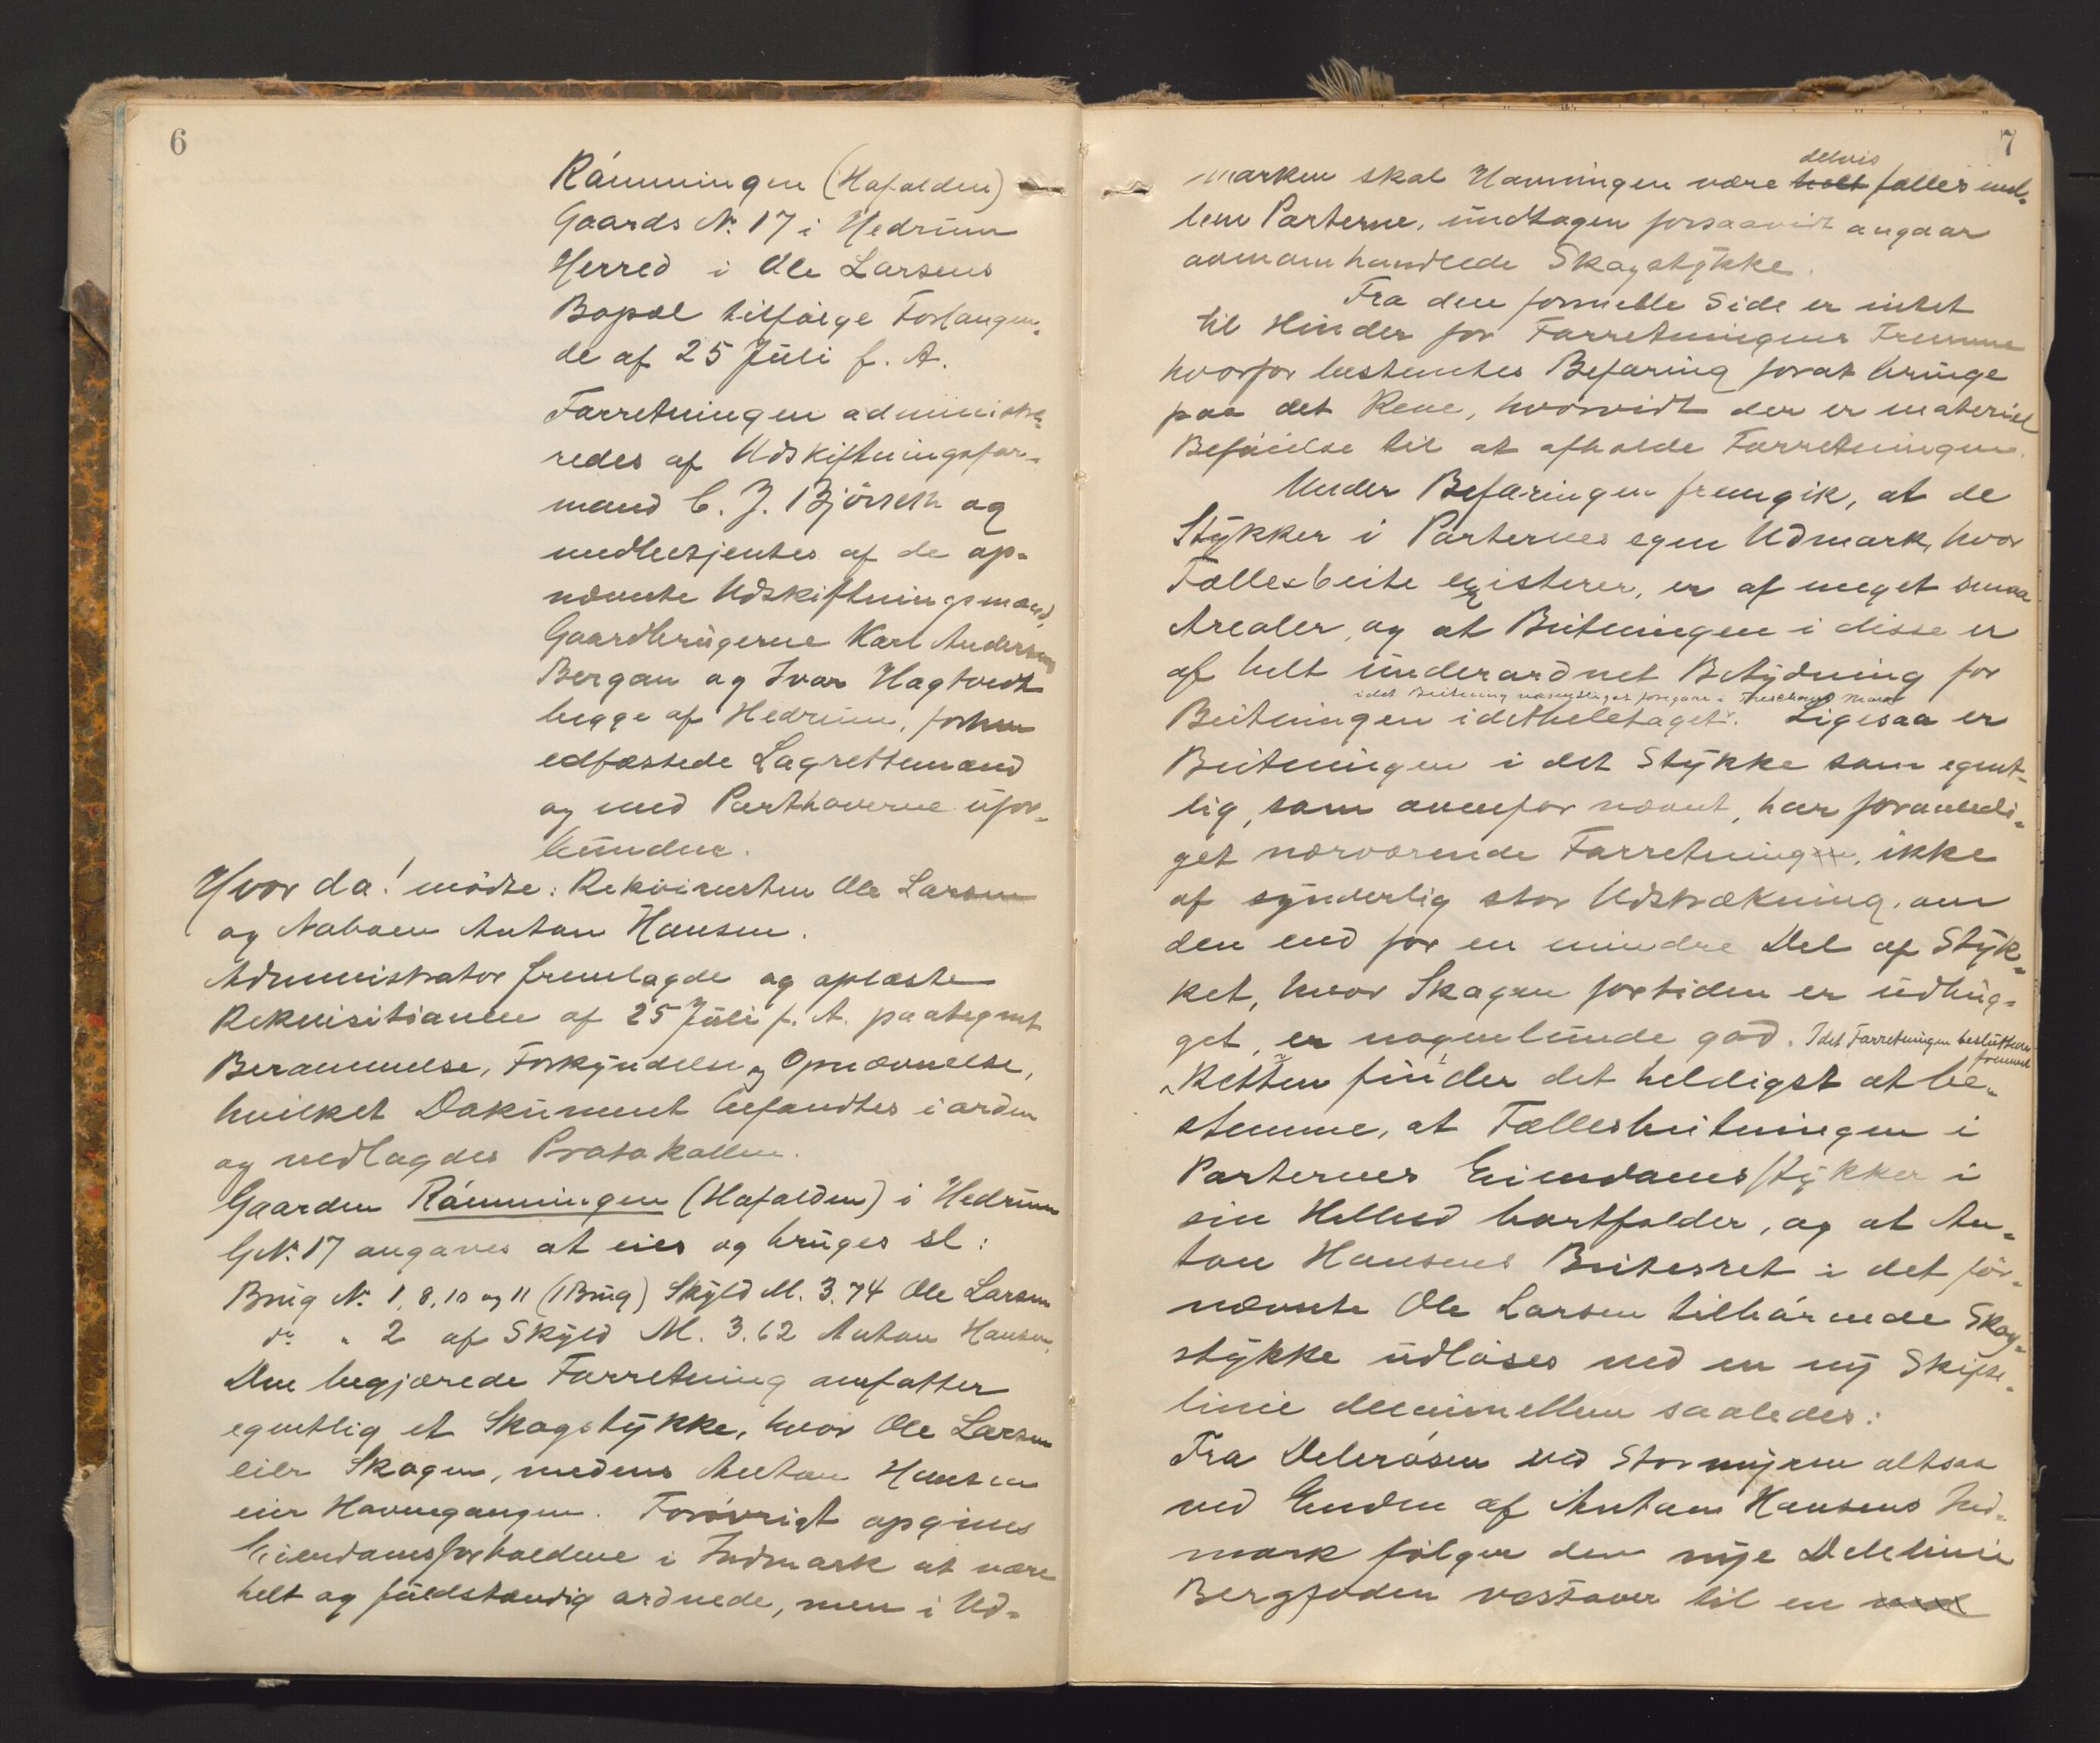 6
Rámningen (Hafalden)
Gaards No. 17 i Hedrum
Herred i Ole Larsens
Bopæl tilfølge Forlangen-
de af 25 Juli f. A.
Forretningen administre-
redes af Udskiftningsfor-
mand C. J. Bjørseth og
medbetjentes af de op-
nævnte Udskiftningsmænd,
Gaardbrugerne Karl Andersen
Bergan og Ivar Hagtvedt
begge af Hedrum, forhen
edfæstede Lagrettemænd
og med Parthaverne ufor-
bundne.
Hvor da! mødte: Rekvirenten Ole Larsen
og Naboen Anton Hansen.
Administrator fremlagde og oplæste
Rekvisitionen af 25 Juli f. A. paategnet
Berammelse, Forkyndelse og Opnævnelse,
hvilket Dokument befandtes i orden
og vedlagdes Protokollen.
Gaarden Rámningen (Hafalden) i Hedrum
GNo. 17 angaves at eies og bruges sl:
Brug No. 1, 8, 10 og 11 (1 Brug) Skyld M. 3.74 Ole Larsen
do " 2 af Skyld M. 3.62 Anton Hansen,
Den begjærede Forretning omfatter
egentlig et Skogstykke, hvor Ole Larsen
eier Skogen, medens Anton Hansen
eier Havnegangen. Forøvrigt opgives
Eiendomsforholdene i Indmark at være
helt og fuldstændig ordnede, men i Ud-
7
marken skal Havningen være helt delvis fælles mel-
lem Parterne, undtagen forsaavidt angaar
ovenomhandlede Skogstykke.
Fra den formelle Side er intet
til Hinder for Forretningens Fremme
hvorfor bestemtes Befaring forat bringe
paa det Rene, hvorvidt der er materiel
Beføielse til at afholde Forretningen.
Under Befaringen fremgik, at de
Stykker i Parternes egen Udmark, hvor
Fællesbeite existerer, er af meget smaa
Arealer, og at Beitningen i disse er
af helt underordnet Betydning for
idet Beitning væsentligst foregaar i Treschows Mark
Beitningen idetheletaget. Ligesaa er
Beitningen i det Stykke som egent-
lig, som ovenfor nævnt, har foranledi-
get nærværende Forretning, ikke
af synderlig stor Udstrækning, om
den end for en mindre Del af Styk-
ket, hvor Skogen fortiden er udhug-
get, er nogenlunde god. Idet Forretningen besluttedes
fremmet
Retten finder det heldigst at be-
stemme, at Fællesbeitningen i
Parternes Eiendomsstykker i
sin Helhed bortfalder, og at An-
ton Hansens Beitesret i det før-
nævnte Ole Larsen tilhørende Skog-
stykke udløses ved en ny Skifte-
linie deeimellem saaledes:
Fra Delerøsen ved Stormyren altsaa
ved Enden af Anton Hansens Ind-
mark følger den nye Delelinie
Bergfoden vestover til en